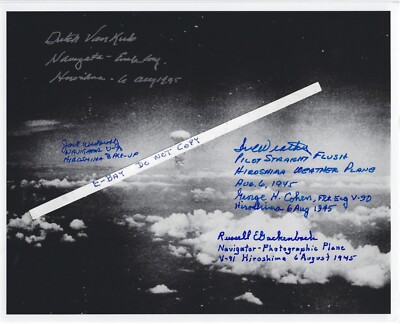 Dutch Van Kirk
Navigator - Enola Gay
Hiroshima - 6 Aug 1945
Jack Widowsky
NAVIGATOR V-
HIROSHIMA BACK-UP
E-BAY DO NOT COPY
PILOT STRAIGHT FLUSH
HIROSHIMA WEATHER PLANE
AUG. 6, 1945
George H. Cohen, Flt Eng V-90
Hiroshima 6 Aug 1945
Russell E Gackenbach
Navigator-Photographic Plane
V-91 Hiroshima 6 August 1945